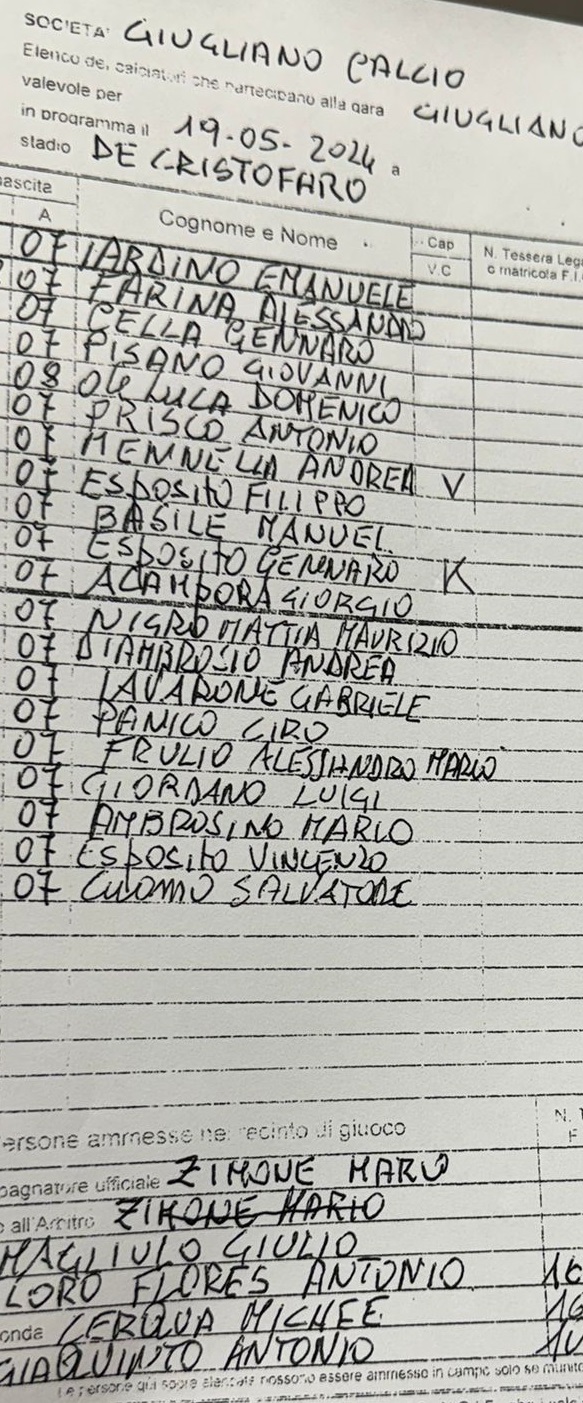 SOCIETA' GIUGLIANO CALCIO
Elenco dei calciatori che partecipano alla gara GIUGLIANO
valevole per
in programma il 19-05-2024 a
stadio DE CRISTOFARO
ascita
A Cognome e Nome Cap V.C N. Tessera Lega o matricola F.I.
07 IARDINO EMANUELE
07 FARINA ALESSANDRO
07 CELLA GENNARO
07 PISANO GIOVANNI
08 DE LUCA DOMENICO
07 PRISCO ANTONIO
07 MENNELLA ANDREA V
07 ESPOSITO FILIPPO
07 BASILE MANUEL
07 ESPOSITO GENNARO K
07 ACAMPORA GIORGIO
07 NIGRO MATTIA MAURIZIO
07 D'AMBROSIO ANDREA
07 IAVARONE GABRIELE
07 PANICO CIRO
07 FRULIO ALESSANDRO MARIO
07 GIORDANO LUIGI
07 AMBROSINO MARIO
07 ESPOSITO VINCENZO
07 CUOMO SALVATORE
ersone ammesse nel recinto di giuoco N.
pagnatore ufficiale ZIMONE MARIO
all'Arbitro ZIMONE MARIO
MAGLIULO GIULIO
LORO FLORES ANTONIO
onda CERQUA MICHEE
GIAQUINTO ANTONIO
Le persone qui sopra elencate possono essere ammesse in campo solo se munite